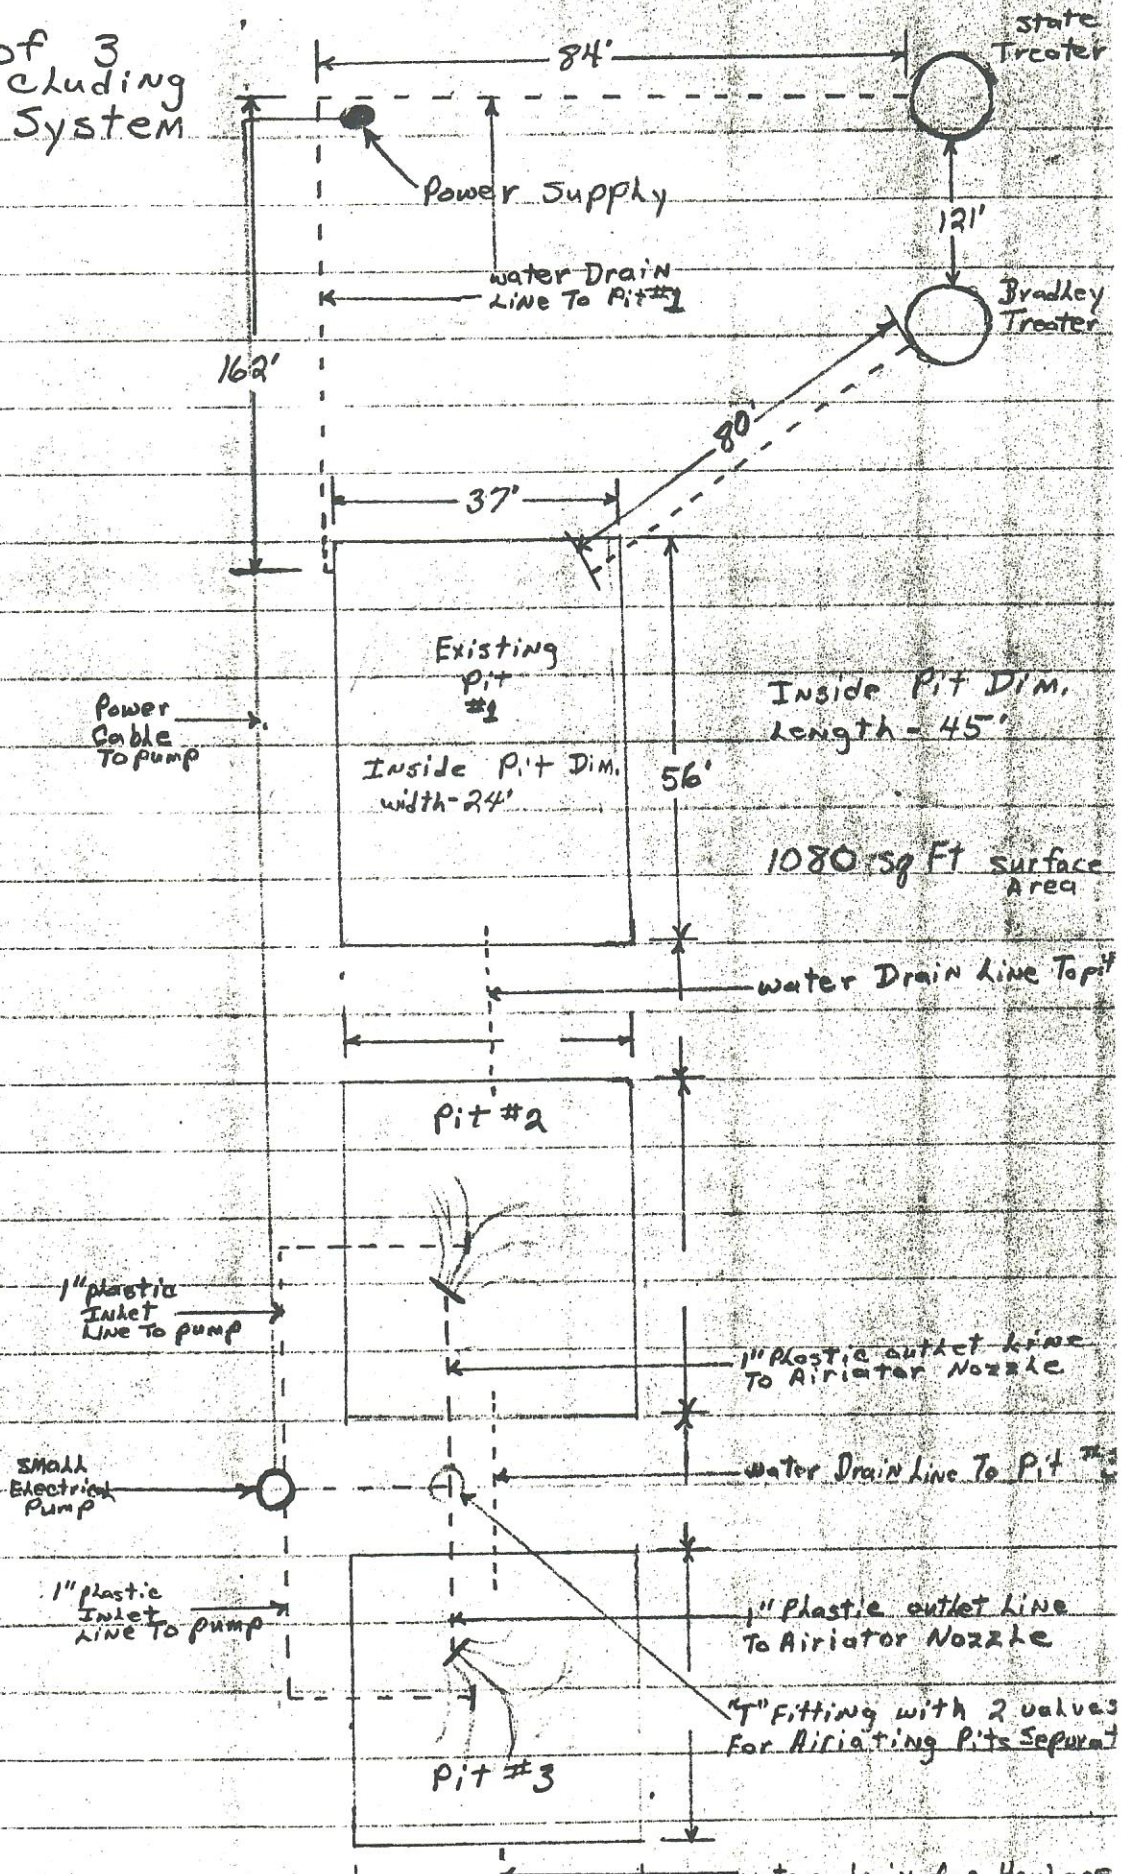 of 3
cluding
System
84'
State
Treater
Power Supply
121'
water Drain
Line To Pit #1
Bradley
Treater
162'
80'
37'
Existing
Pit
#1
Inside Pit Dim.
Length - 45'
Power
Cable
To pump
Inside Pit Dim.
width - 24'
56'
1080 sq Ft surface
Area
water Drain Line To pit
Pit #2
1" plastic
Inlet
Line To pump
1" Plastic outlet Line
To Airiator Nozzle
small
Electrical
Pump
water Drain Line To Pit #
1" plastic
Inlet
Line To pump
1" Plastic outlet Line
To Airiator Nozzle
"T" Fitting with 2 valves
For Airiating Pits Separat
Pit #3